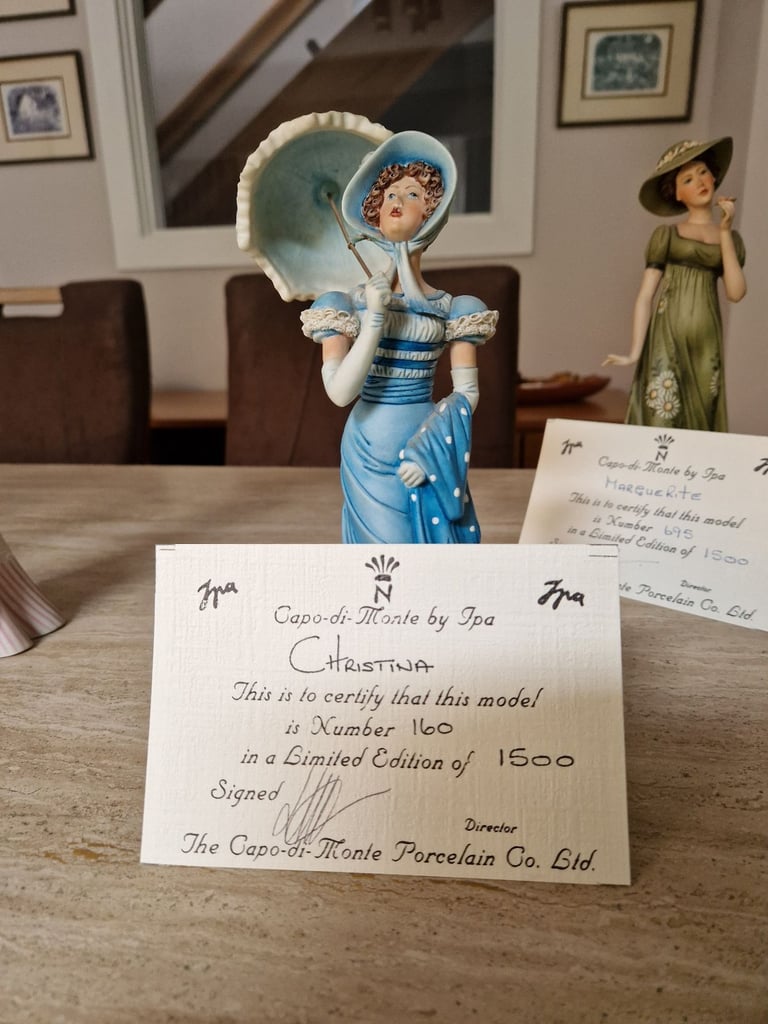 Ipa
N
Ipa
Capo-di-Monte by Ipa
CHRISTINA
This is to certify that this model
is Number 160
in a Limited Edition of 1500
Signed
Director
The Capo-di-Monte Porcelain Co. Ltd.
Ipa
N
Capo-di-Monte by Ipa
MARGUERITE
This is to certify that this model
is Number 695
in a Limited Edition of 1500
Director
Porcelain Co. Ltd.